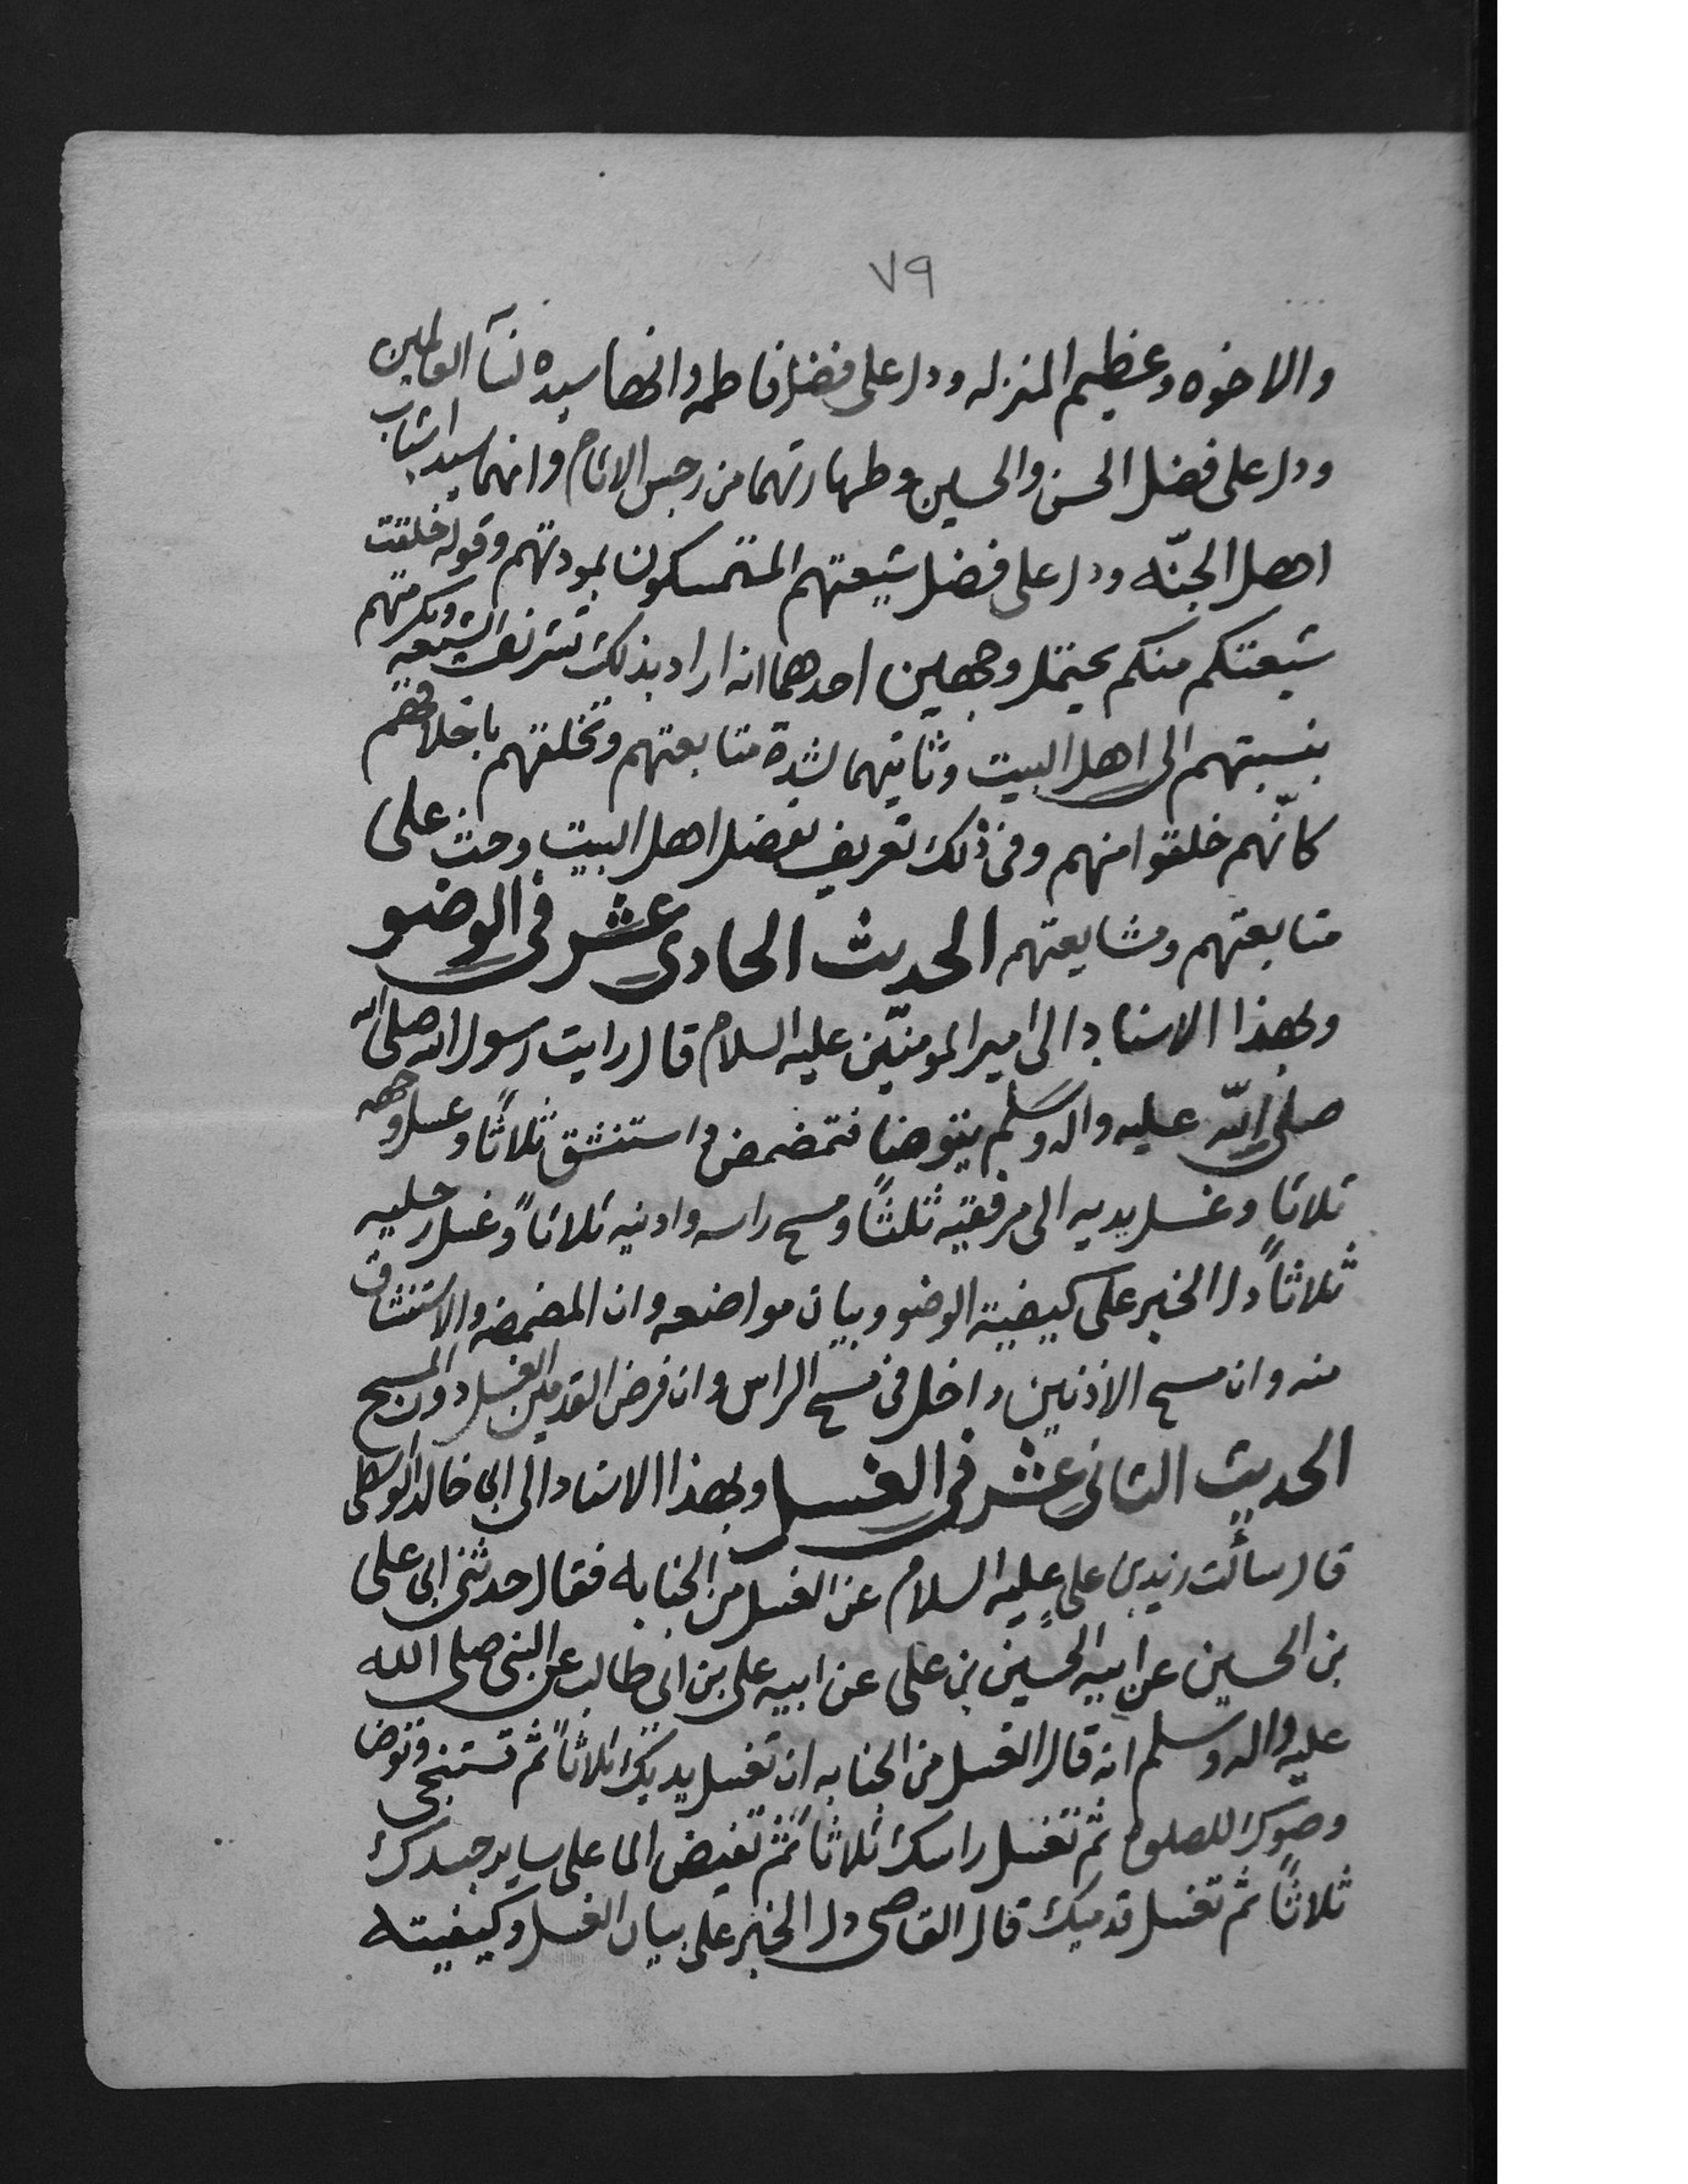 ٧٩
والاخوه وعظيم المنزله ودل على فضل فاطمه وانها سيده نسآ العالمين
ودل على فضل الحسن والحسين وطهارتهما من رجس الاثام وانهما سيدا شباب
اهل الجنّه ودل على فضل شيعتهم المتمسكون بمودتهم وقوله خلقت
شيعتكم منكم يحتمل وجهين احدهما انه اراد بذلك تشريف الشيعه وتكرمتهم
بنسبتهم الى اهل البيت وثانيهما لشدة متابعتهم وتخلقهم باخلاقهم
كانّهم خلقوا منهم وفى ذلك تعريف بفضل اهل البيت وحث على
متابعتهم ومشايعتهم الحديث الحادى عشر فى الوضو
وبهذا الاسناد الى امير المومنين عليه السلام قال رايت رسول الله صلى الله
صلى الله عليه واله وسلم يتوضا فتمضمض واستنشق ثلاثًا وغسل وجهه
ثلاثا وغسل يديه الى مرفقيه ثلثًا ومسح راسه واذنيه ثلاثاً وغسل رجليه
ثلاثاً دل الخبر على كيفية الوضو وبيان مواضعه وان المضمضه والاستنشاق
منه وان مسح الاذنين داخل فى مسح الراس وان فرض القدمين الغسل دون المسح
الحديث الثانى عشر فى الغسل وبهذا الاسناد الى ابى خالد الواسطى
قال سألت زيد بن على عليه السلام عن الغسل من الجنابه فقال حدثنى ابى على
بن الحسين عن ابيه الحسين بن على عن ابيه على بن ابى طالب عن النبى صلى الله
عليه واله وسلم انه قال الغسل من الجنابه ان تغسل يديك ثلاثاً ثم تستنجى وتوضا
وضوك للصلوة ثم تغسل راسك ثلاثاً ثم تفيض الما على ساير جسدك
ثلاثاً ثم تغسل قدميك قال القاضى دل الخبر على بيان الغسل وكيفيته